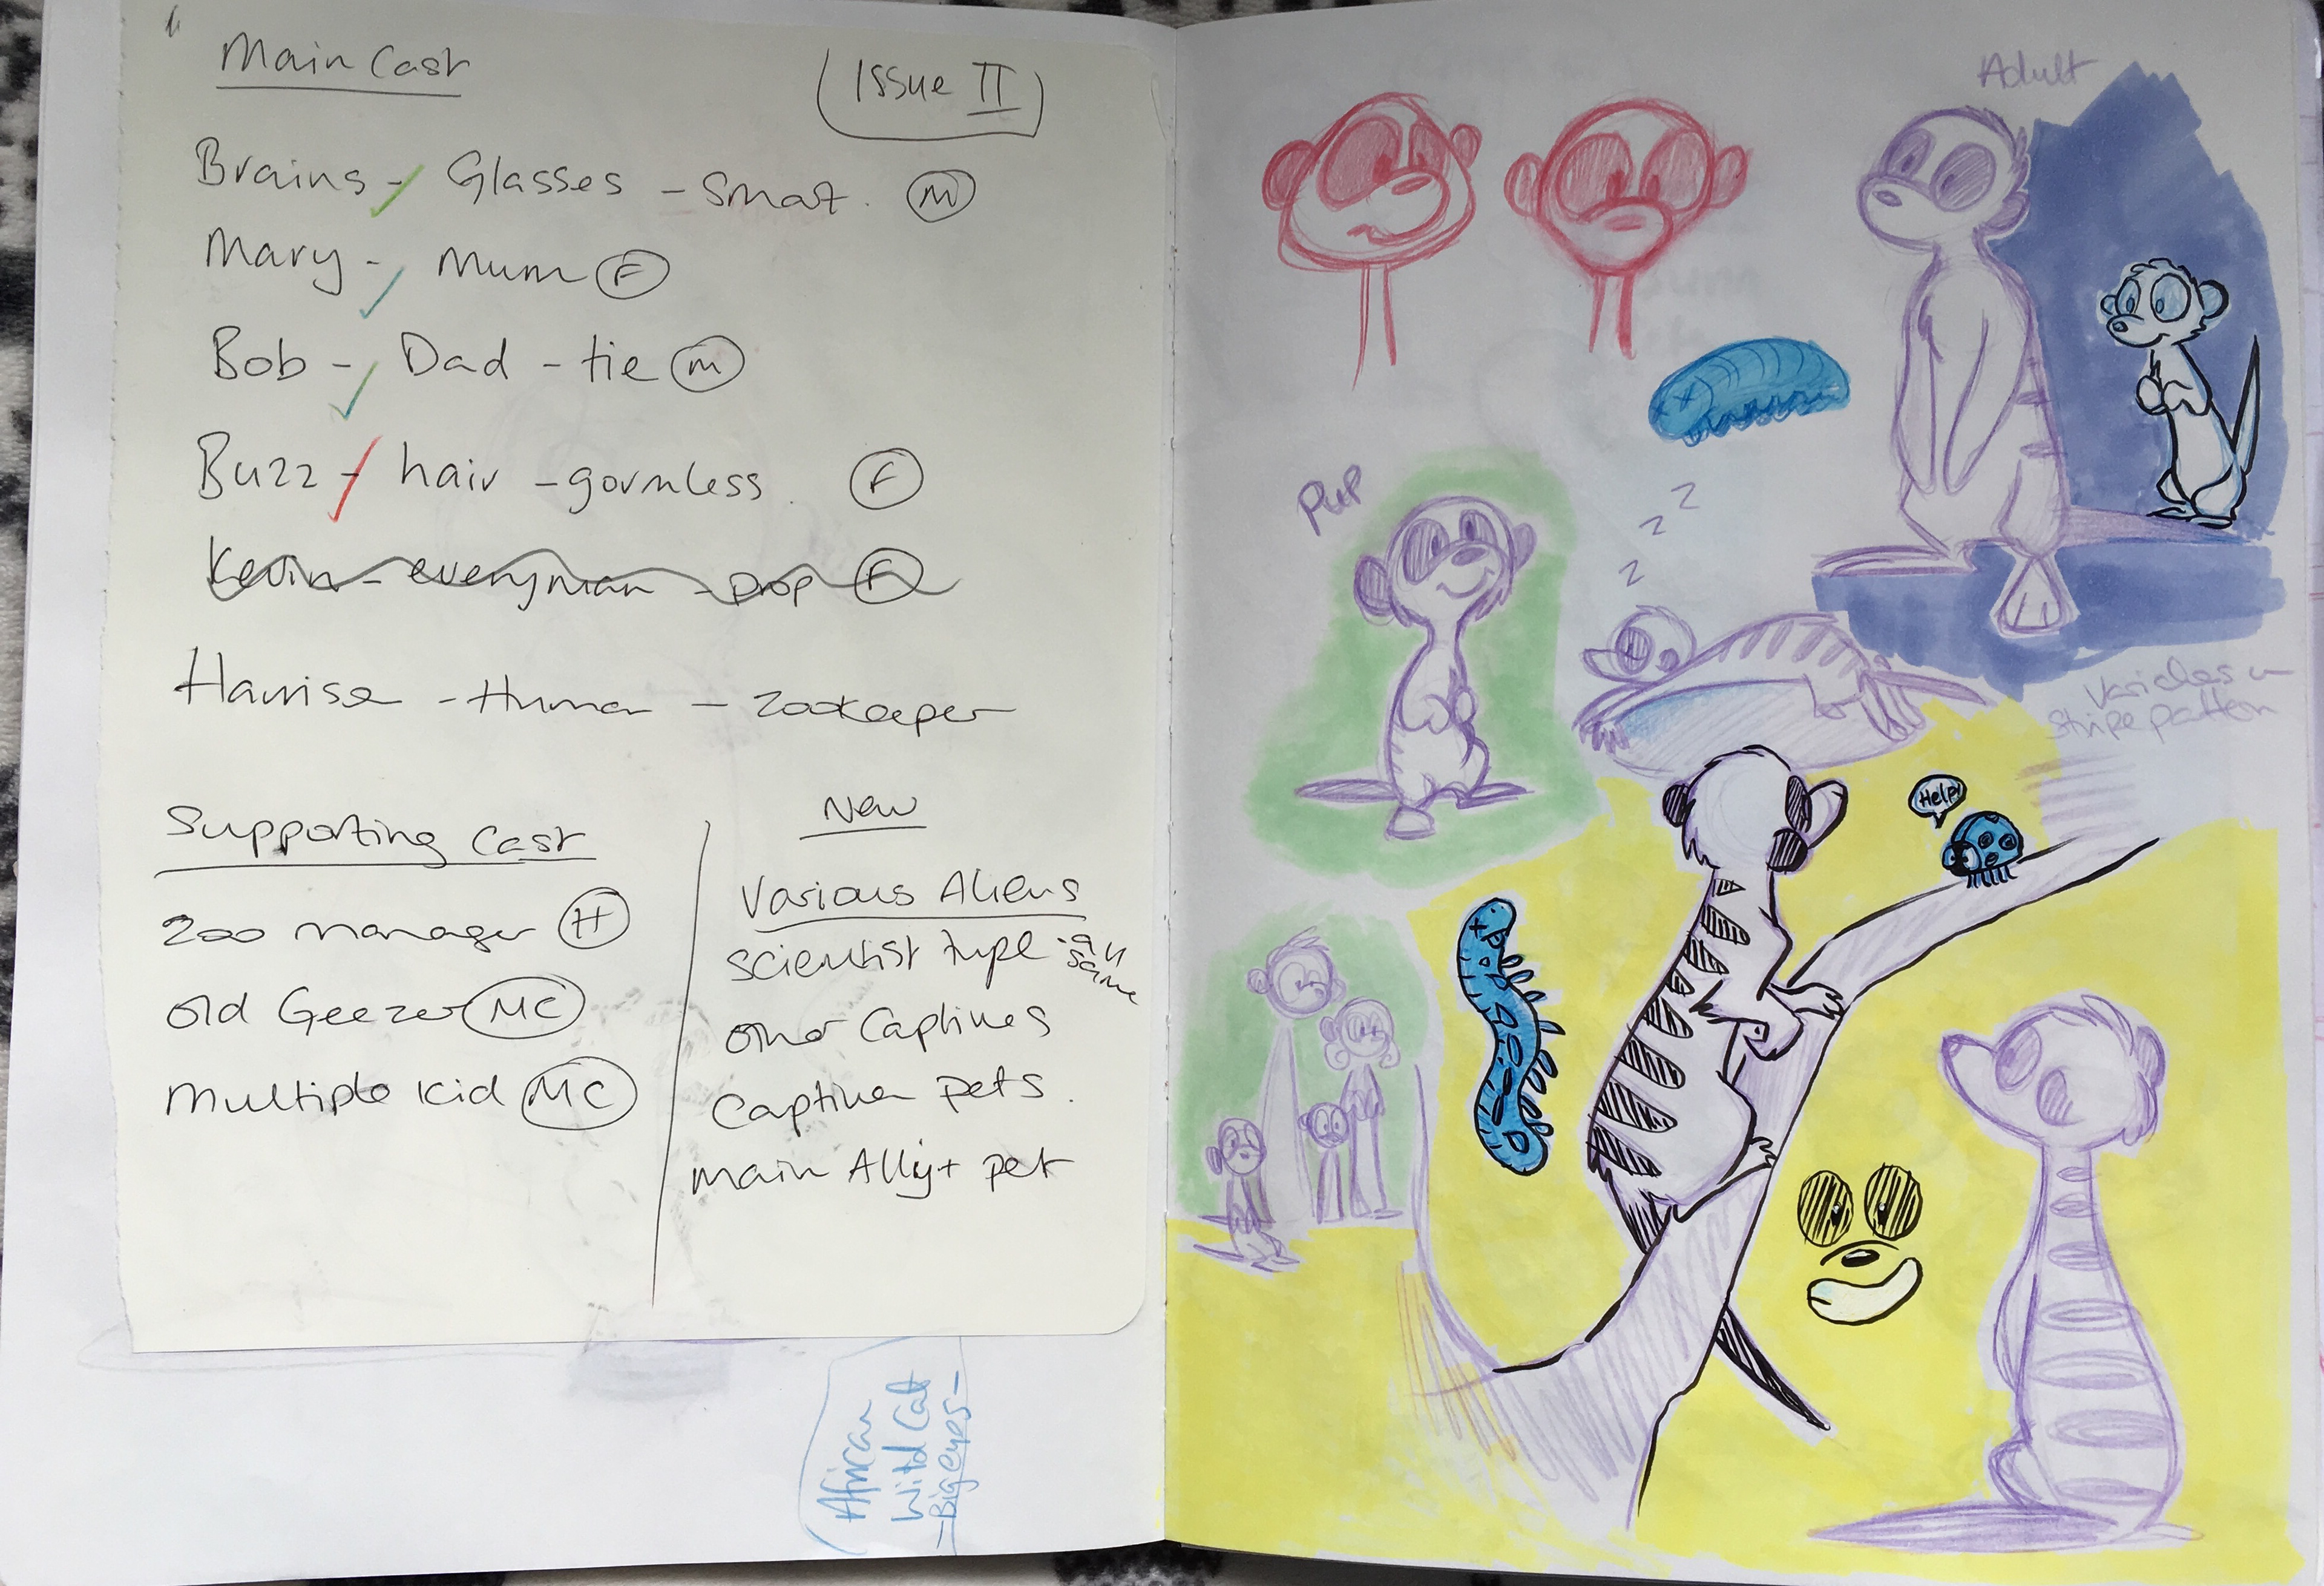 Main Cast
Issue II
Brains - Glasses - Smat. M
Mary - Mum F
Bob - Dad - tie M
Buzz - hair - gormless. F
Kevin - everyman - prop F
Harrison - Human - Zookeeper
Supporting Cast
Zoo manager H
Old Geezer MC
Multiple kid MC
New
Various Aliens
Scientist type - all same
Other Captives
Captive pets.
Main Ally + pet
African
Wild Cat
- Big eyes -
Adult
Pup
z z z
Variables in
stripe pattern
Help!